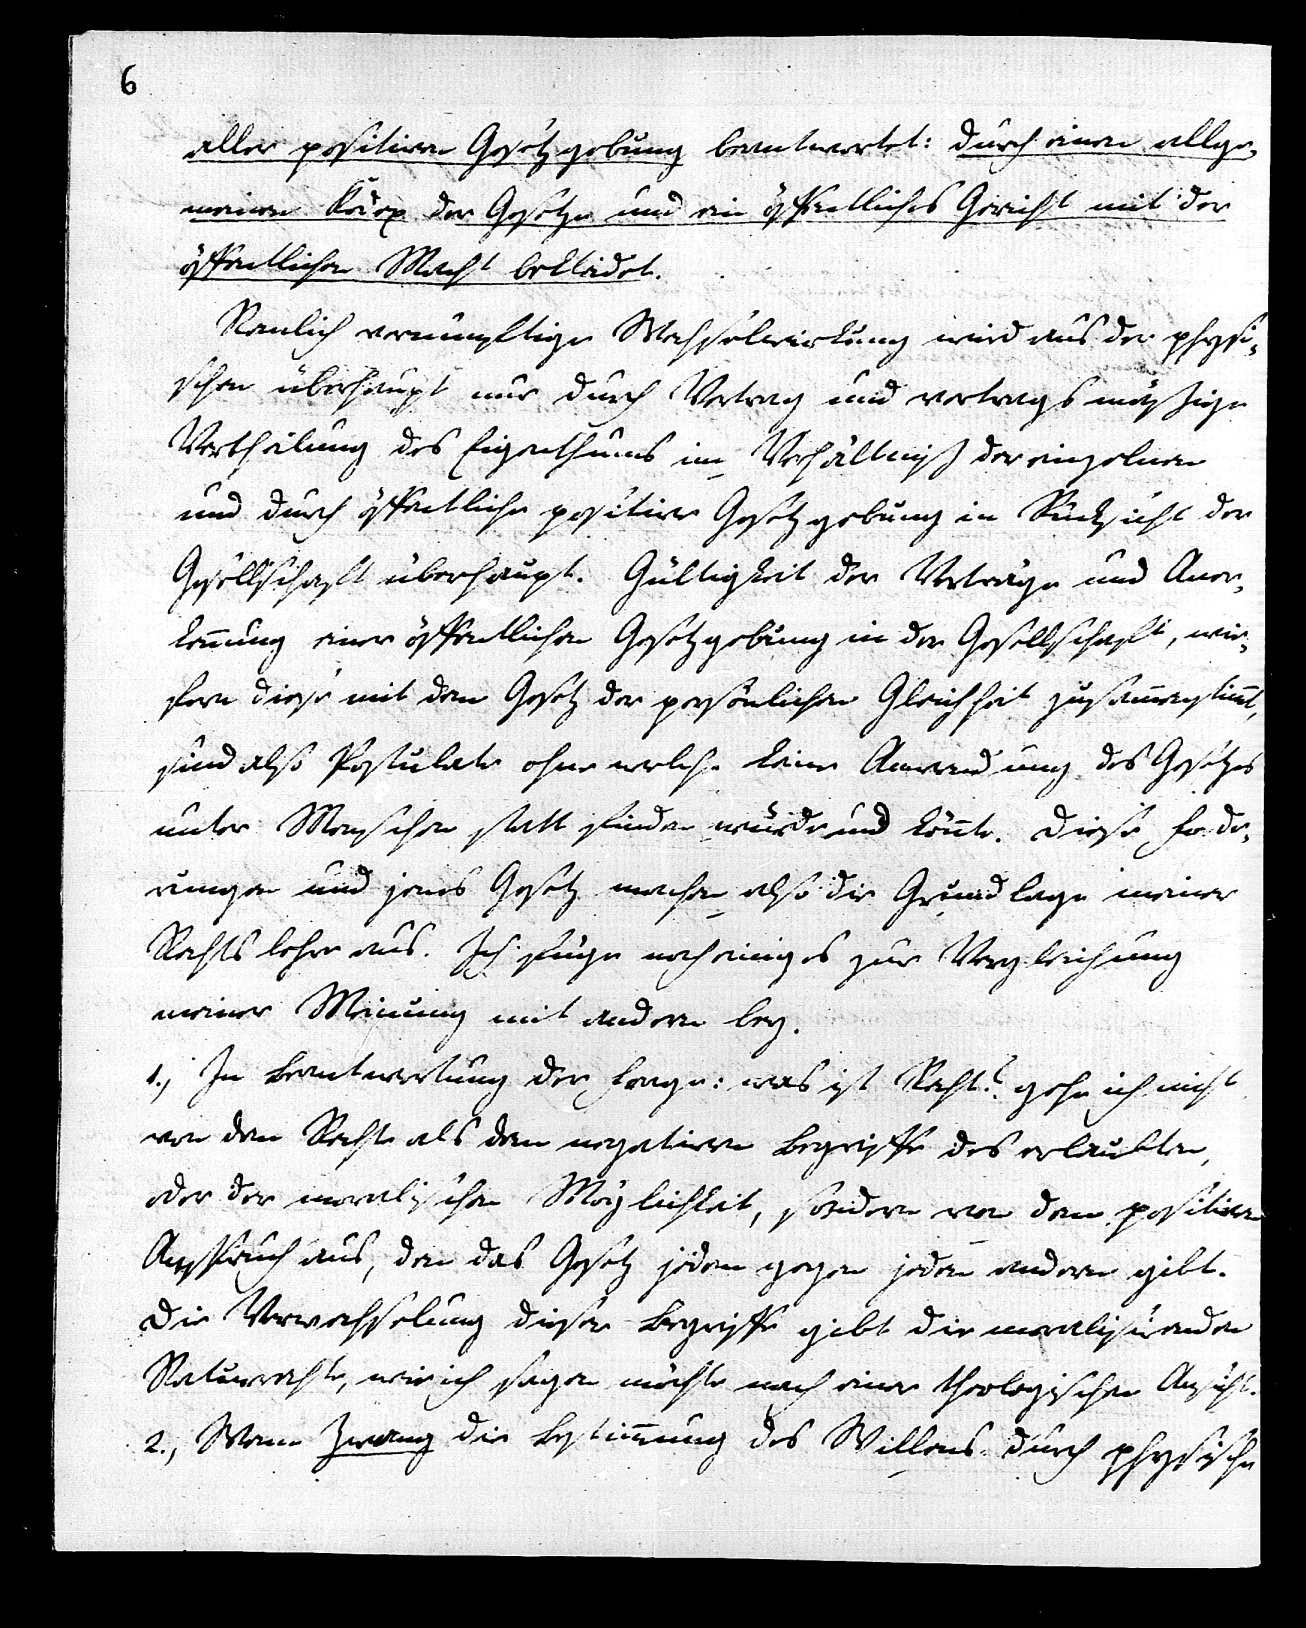 6
aller positiven Gesetzgebung beantwortet: durch einen allge-
meinen Kodex der Gesetze und ein öffentliches Gericht mit der
öffentlichen Macht bekleidet.
Nemlich vernünftige Wechselwirkung wird aus der physi-
schen überhaupt nur durch Vertrag und vertragsmäßige
Vertheilung des Eigenthums im Verhältniß der einzelnen
und durch öffentliche positive Gesetzgebung in Rücksicht der
Gesellschaft überhaupt. Gültigkeit der Verträge und Aner-
kennung einer öffentlichen Gesetzgebung in der Gesellschaft, wie-
fern diese mit dem Gesetz der persönlichen Gleichheit zusammenstimt,
sind also Postulate ohne welche keine Anwendung des Gesetzes
unter Menschen statt finden würde und könnte. Diese Fode-
rungen und jenes Gesetz machen also die Grundlage meiner
Rechtslehre aus. Ich füge noch einiges zur Vergleichung
meiner Meinung mit andern bey.
1., In Beantwortung der Frage: was ist Recht? gehe ich nicht
von dem Rechte als dem negativen Begriffe des erlaubten,
oder der moralischen Möglichkeit, sondern von dem positiven
Anspruch aus, den das Gesetz jedem gegen jeden andern gibt.
Die Verwechselung dieser Begriffe gibt die moralisirenden
Naturrechte, wie ich sagen möchte nach einer theologischen Ansicht.
2., Wenn Zwang die Bestimmung des Willens durch physische